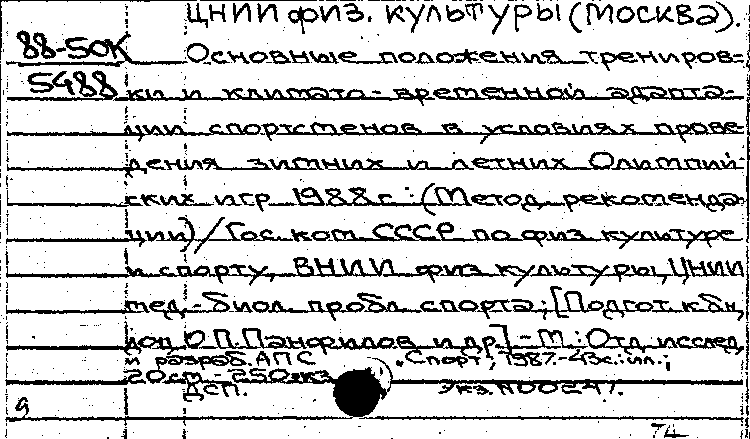 ЦНИИ физ. культуры (Москва).
88-50К
Основные положения трениров-
5488
ки и климато-временной адапта-
ции спортсменов в условиях прове-
дения зимних и летних Олимпий-
ских игр 1988 г.: (Метод. рекоменда-
ции) / Гос. ком. СССР по физ. культуре
и спорту, ВНИИ физ. культуры, ЦНИИ
мед.-биол. пробл. спорта; [Подгот. к.б.н.,
доц. О.П. Панфилов и др.] - М.: Отд. исслед.
и разраб. АПС „Спорт", 1987. - 43с.: ил.;
20 см - 250 экз.
ДСП. Экз. N 00247.
9
74